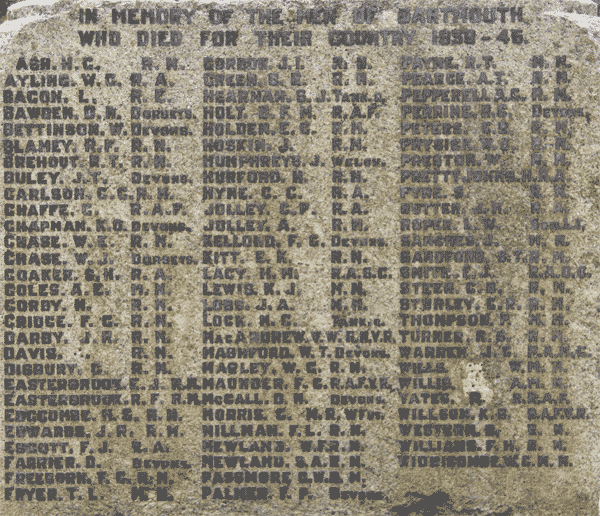 IN MEMORY OF THE MEN OF DARTMOUTH
WHO DIED FOR THEIR COUNTRY 1939-45.
ASH. H.C. R.N.
AYLING. W.G. R.A.
BACON. L. R.E.
BAWDEN. D.N. DORSETS.
BETTINSON. W. DEVONS.
BLAMEY. R.F. R.N.
BREHOUT. R.T. R.N.
BULEY. J. DEVONS.
CARLSON. C.G. R.N.
CHAFFE. C. R.A.F.
CHAPMAN. K.O. DEVONS.
CHASE. W.E. R.N.
CHASE. W.J. DORSETS.
COAKER. S.H. R.A.
COLES. A.E. M.N.
CORBY. N. R.N.
CRIDGE. F.G. R.N.
DARBY. J.R. R.N.
DAVIS. R.N.
DIGBURY. R.N.
EASTERBROOK. E.J. R.N.
EASTERBROOK. R.F. R.M.
EDGCOMBE. H.S. R.N.
EDWARDS. J.R. R.N.
ESCOTT. F.J. R.A.
FARRIER. D. DEVONS.
FREEBORN. T.G. R.N.
FRYER. T.L.
GORDON. J.I. R.N.
GREEN. R.N.
HEARMAN. S.J.
HOLY. R.A.F.
HOLDER. E.G. R.M.
HOSKIN. J. R.N.
HUMPHREYS. J. WELCH.
HURFORD. H. R.N.
HYNE. C.C. R.A.
JOLLEY. C.P. R.A.
JOLLEY. A. R.N.
KELLOND. F.G. DEVONS.
KITT. E.K. R.N.
LACY. H.H. R.A.S.C.
LEWIS. K.J. M.N.
LOBB. J.A. M.N.
LOCK. H.G.
MACANDREW. V.W.G. R.V.R.
MASHFORD. W.T. DEVONS.
MASLEY. W.G. R.N.
MAUNDER. F.G. R.A.F.V.R.
MCCALL. D.N. DEVONS.
MORRIS. G. N.R.WFUS.
MILLMAN. F.L. R.N.
NEWLAND. W.F. R.N.
NEWLAND. S.A. R.N.
PASSMORE. G.W. R.N.
PALMER. T.F. DEVONS.
PAYNE. R.T.
PEARCE. A.T. R.N.
PEPPERELL. A.G. R.N.
PERRING. R.G. DEVONS.
PETERS. R.N.
PHYSICK. W.G. R.N.
PRESTON. W. R.N.
PRETTYJOHNS. H. R.A.
PYNE. S. R.N.
RUTTER. J.H. R.N.
ROPER. L.W.
R.N.
SANDFORD. S.T. R.N.
SMITH. E.J. R.A.O.C.
STEER. C.D. R.N.
STURLEY. C.R. R.N.
THOMPSON. F. M.N.
TURNER. R.G. R.N.
WARREN. J.C. R.A.M.C.
WILLS. W. M.N.
WILLIS. M.N.
YATES. R. R.R.A.F.
WILLSON. K.B. R.A.F.V.R.
WESTERN. R.N.
WILLIAMS. F.H. R.N.
WIDDICOMBE. W.G. M.N.